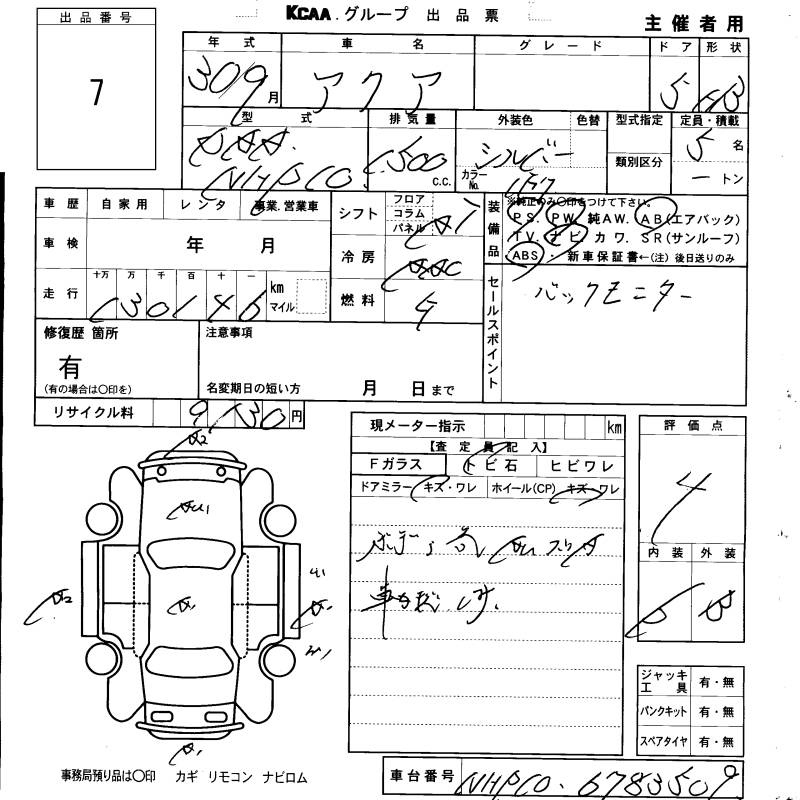 KCAA.グループ 出品票
主催者用
出品番号
7
年式 車名 グレード ドア 形状
30/9月 アクア 5 HB
型式 排気量 外装色 色替 型式指定 定員・積載
DAA 1500 c.c. シルバー 5名
NHP10 カラーNo. 類別区分 ートン
車歴 自家用 レンタ 事業.営業車
車検 年 月
走行 十万 万 千 百 十 一 km マイル
130146
シフト フロア コラム パネル AT
冷房 AAC
燃料 G
装備品
※純正のみ〇印をつけて下さい。
PS. PW. 純AW. AB(エアバック)
TV. ナビ. カワ. SR(サンルーフ)
ABS・新車保証書←(注) 後日送りのみ
セールスポイント
バックモニター
修復歴 箇所
有
(有の場合は〇印を)
注意事項
名変期日の短い方 月 日まで
リサイクル料 9130円
現メーター指示 km
【査定員記入】
Fガラス トビ石 ヒビワレ
ドアミラー キズ・ワレ ホイール(CP) キズ・ワレ
評価点
4
内装 外装
B B
A2
AU1
A1
A2
A1
ジャッキ工具 有・無
パンクキット 有・無
スペアタイヤ 有・無
事務局預り品は〇印 カギ リモコン ナビロム
車台番号 NHP10-6783509